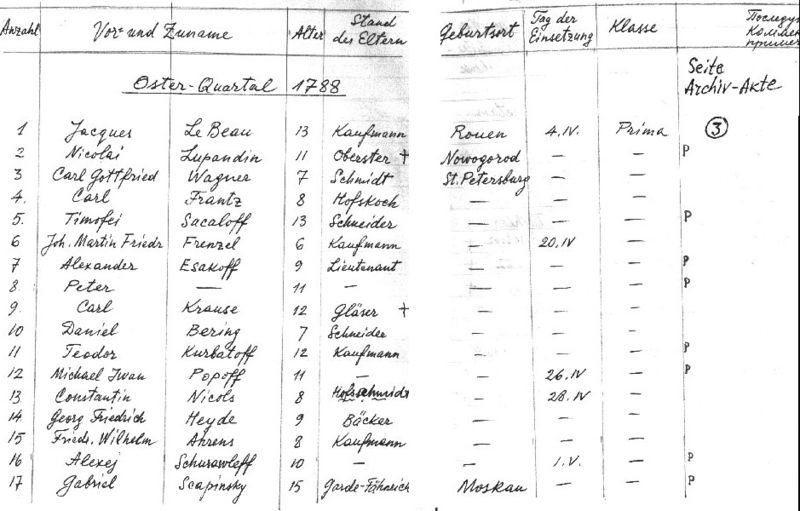 Anzahl Vor= und Zuname Alter Stand des Eltern Geburtsort Tag der Einsetzung Klasse Последу Коммен примеч
Oster-Quartal 1788 Seite Archiv-Akte
1 Jacques Le Beau 13 Kaufmann Rouen 4.IV. Prima ③
2 Nicolai Lupandin 11 Oberster † Nowogorod — — P
3 Carl Gottfried Wagner 7 Schmidt St. Petersburg — —
4. Carl Frantz 8 Hofskoch — — —
5. Timofei Sacaloff 13 Schneider — — — P
6 Joh. Martin Friedr Frenzel 6 Kaufmann — 20.IV —
7 Alexander Esakoff 9 Lieutenant — — — P
8. Peter — 11 — — — — P
9. Carl Krause 12 Gläser † — — —
10 Daniel Bering 7 Schneider — — —
11 Teodor Kurbatoff 12 Kaufmann — — — P
12 Michael Iwan Popoff 11 — — 26.IV — P
13 Constantin Nicols 8 Hofsschmidt — 28.IV —
14 Georg Friedrich Heyde 9 Bäcker — — —
15 Friedr. Wilhelm Ahrens 8 Kaufmann — — —
16 Alexej Schurawleff 10 — — 1.V. — P
17 Gabriel Scapinsky 15 Garde-Fähnrich Moskau — — P